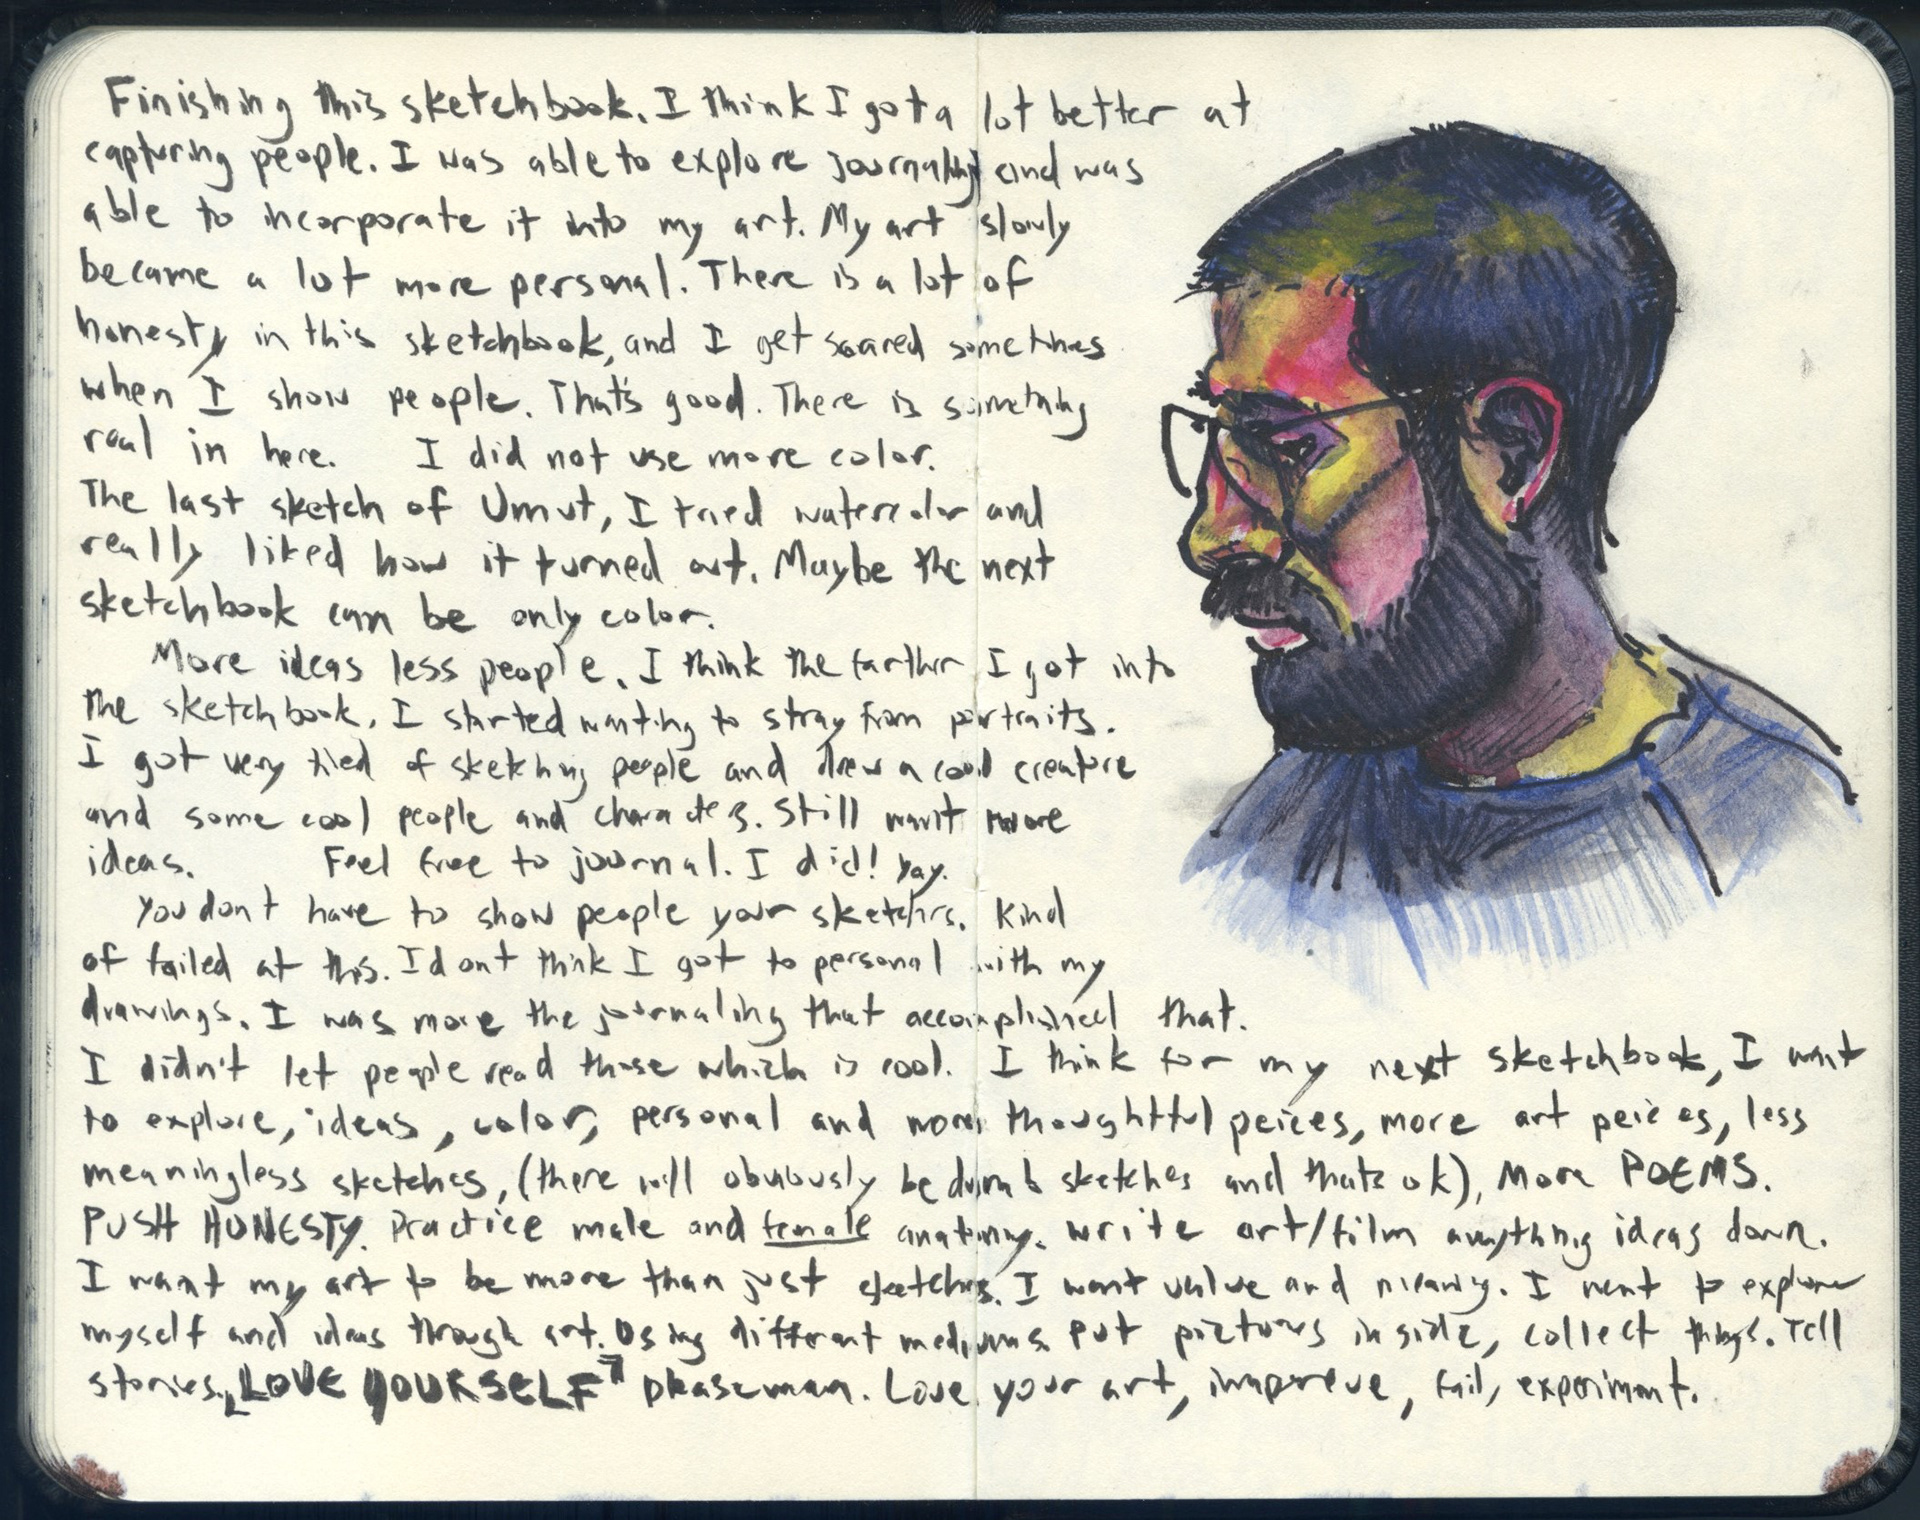 Finishing this sketchbook. I think I got a lot better at
capturing people. I was able to explore journaling and was
able to incorporate it into my art. My art slowly
became a lot more personal. There is a lot of
honesty in this sketchbook, and I get scared sometimes
when I show people. That's good. There is something
real in here. I did not use more color.
The last sketch of Umut, I tried watercolor and
really liked how it turned out. Maybe the next
sketchbook can be only color.
More ideas less people. I think the farther I got into
the sketchbook, I started wanting to stray from portraits.
I got very tired of sketching people and drew a cool creature
and some cool people and characters. Still want more
ideas. Feel free to journal. I did! Yay.
You dont have to show people your sketches. Kind
of failed at this. I dont think I got to personal with my
drawings. I was more the journaling that accomplished that.
I didn't let people read those which is cool. I think for my next sketchbook, I want
to explore, ideas, color, personal and more thoughtful peices, more art peices, less
meaningless sketches, (there will obviously be dumb sketches and thats ok), More POEMS.
PUSH HONESTY. Practice male and female anatomy. write art/film anything ideas down.
I want my art to be more than just sketches. I want value and meaning. I want to explore
myself and ideas through art. Using different mediums. Put pictures inside, collect things. Tell
stories. LOVE YOURSELF please man. Love your art, improve, fail, experiment.